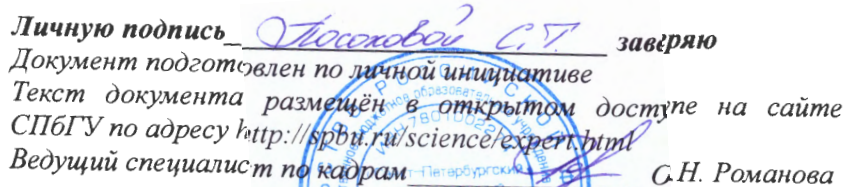 Личную подпись Посоховой С.Т. заверяю
Документ подготовлен по личной инициативе
Текст документа размещён в открытом доступе на сайте
СПбГУ по адресу http://spbu.ru/science/expert.html
Ведущий специалист по кадрам С.Н. Романова